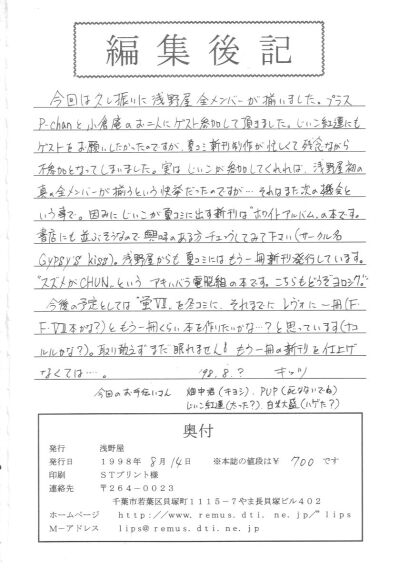 編集後記
今回は久し振りに浅野屋全メンバーが揃いました。プラス
P-chanと小倉庵のお二人にゲスト参加して頂きました。じぃこ紅蓮にも
ゲストをお願いしたかったのですが、夏コミ新刊制作が忙しくて残念ながら
不参加となってしまいました。実はじぃこが参加してくれれば、浅野屋初の
真の全メンバーが揃うという快挙だったのですが…それはまた次の機会と
いう事で。因みにじぃこが夏コミに出す新刊は"ホワイトアルバム"の本です。
書店にも並ぶそうなので興味のある方チェックしてみて下さい(サークル名
Gypsy's kiss)。浅野屋からも夏コミにはもう一冊新刊発行しています。
"スズメがCHUN"というアキハバラ電脳組の本です。こちらもどうぞヨロシク。
今後の予定としては"蛍Ⅶ"を冬コミに、それまでにレヴォに一冊(F・
F・Ⅶ本かな?)ともう一冊くらい本を作りたいかな…?と思っています(ナコ
ルルかな?)。取り敢えずまだ眠れません!もう一冊の新刊を仕上げ
なくては…。 '98.8.? キッツ
今回のお手伝いさん 畑中君(キヨシ)、PUP(死なないでね)
じぃこ紅蓮(太った?)、白菜大盛(ハゲた?)
奥付
発行 浅野屋
発行日 1998年8月14日 ※本誌の値段は¥700です
印刷 STプリント様
連絡先 〒264-0023
千葉市若葉区貝塚町1115-7やま長貝塚ビル402
ホームページ http://www.remus.dti.ne.jp/~lips
M-アドレス lips@remus.dti.ne.jp